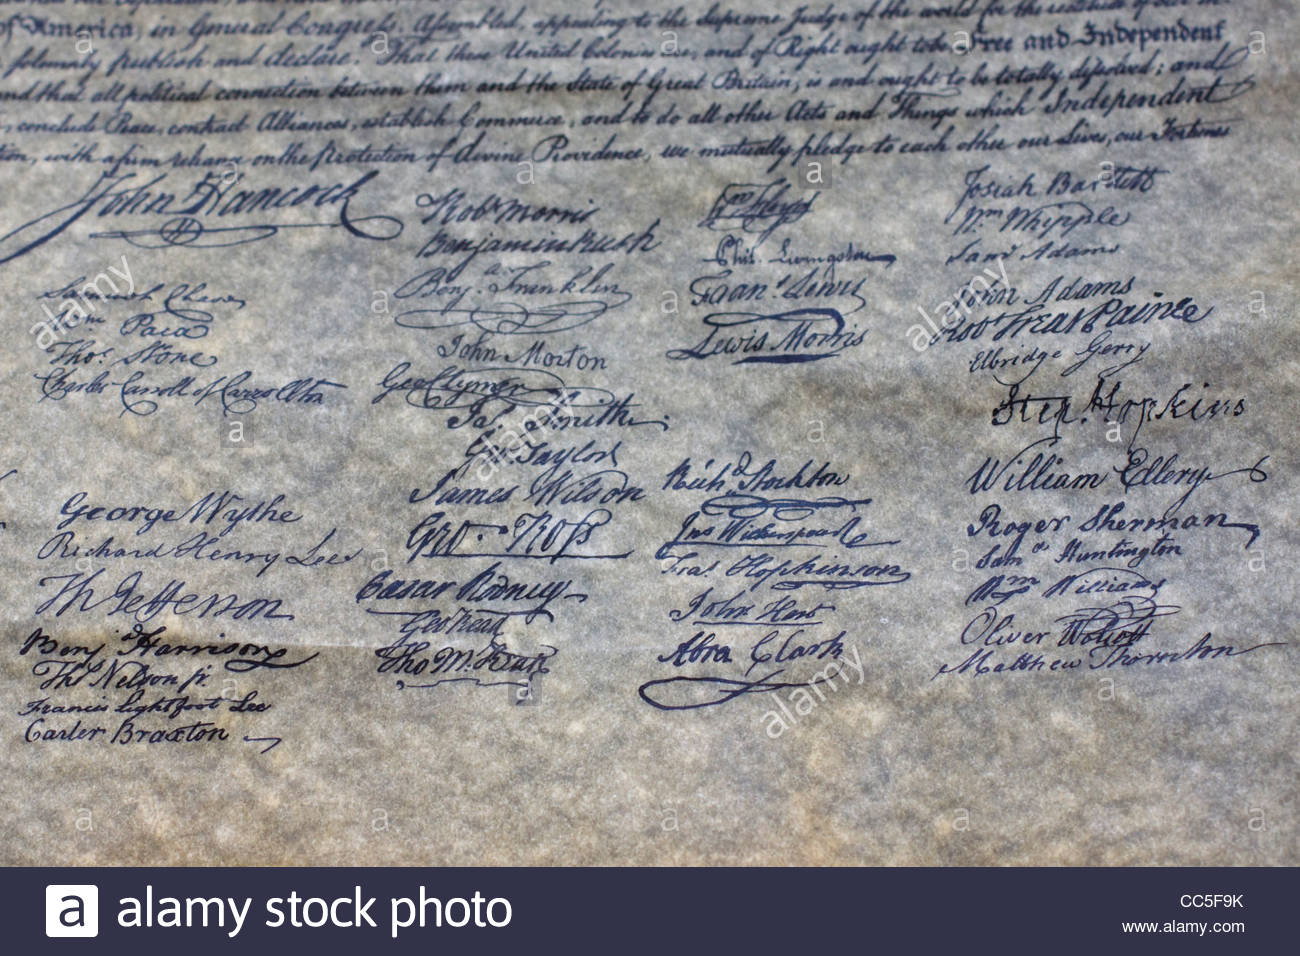 of America, in General Congress, Assembled, appealing to the Supreme Judge of the world for the rectitude of our in
solemnly publish and declare, That these United Colonies are, and of Right ought to be Free and Independent
and that all political connection between them and the State of Great Britain, is and ought to be totally dissolved; and
conclude Peace, contract Alliances, establish Commerce, and to do all other Acts and Things which Independent
with a firm reliance on the Protection of divine Providence, we mutually pledge to each other our Lives, our Fortunes
John Hancock
Samuel Chase
Wm Paca
Thos. Stone
Charles Carroll of Carrollton
George Wythe
Richard Henry Lee
Th Jefferson
Benj Harrison
Thos Nelson jr.
Francis Lightfoot Lee
Carter Braxton
Robt Morris
Benjamin Rush
Benja. Franklin
John Morton
Geo Clymer
Jas. Smith
Geo. Taylor
James Wilson
Geo. Ross
Caesar Rodney
Geo Read
Tho M:Kean
Wm Floyd
Phil. Livingston
Frans. Lewis
Lewis Morris
Richd. Stockton
Jno Witherspoon
Fras. Hopkinson
John Hart
Abra Clark
Josiah Bartlett
Wm Whipple
Saml Adams
John Adams
Robt Treat Paine
Elbridge Gerry
Step. Hopkins
William Ellery
Roger Sherman
Samel Huntington
Wm Williams
Oliver Wolcott
Matthew Thornton
alamy
alamy
alamy
alamy
alamy
a alamy stock photo
CC5F9K
www.alamy.com